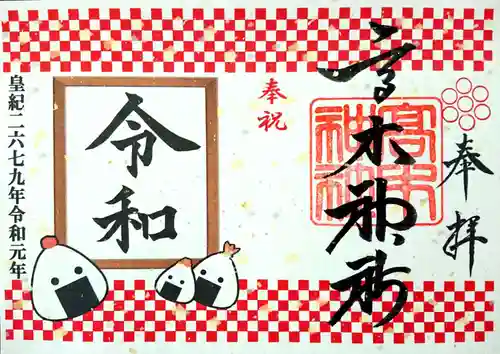 奉拝
高木神社
高木
神社
奉祝
令和
皇紀二六七九年令和元年